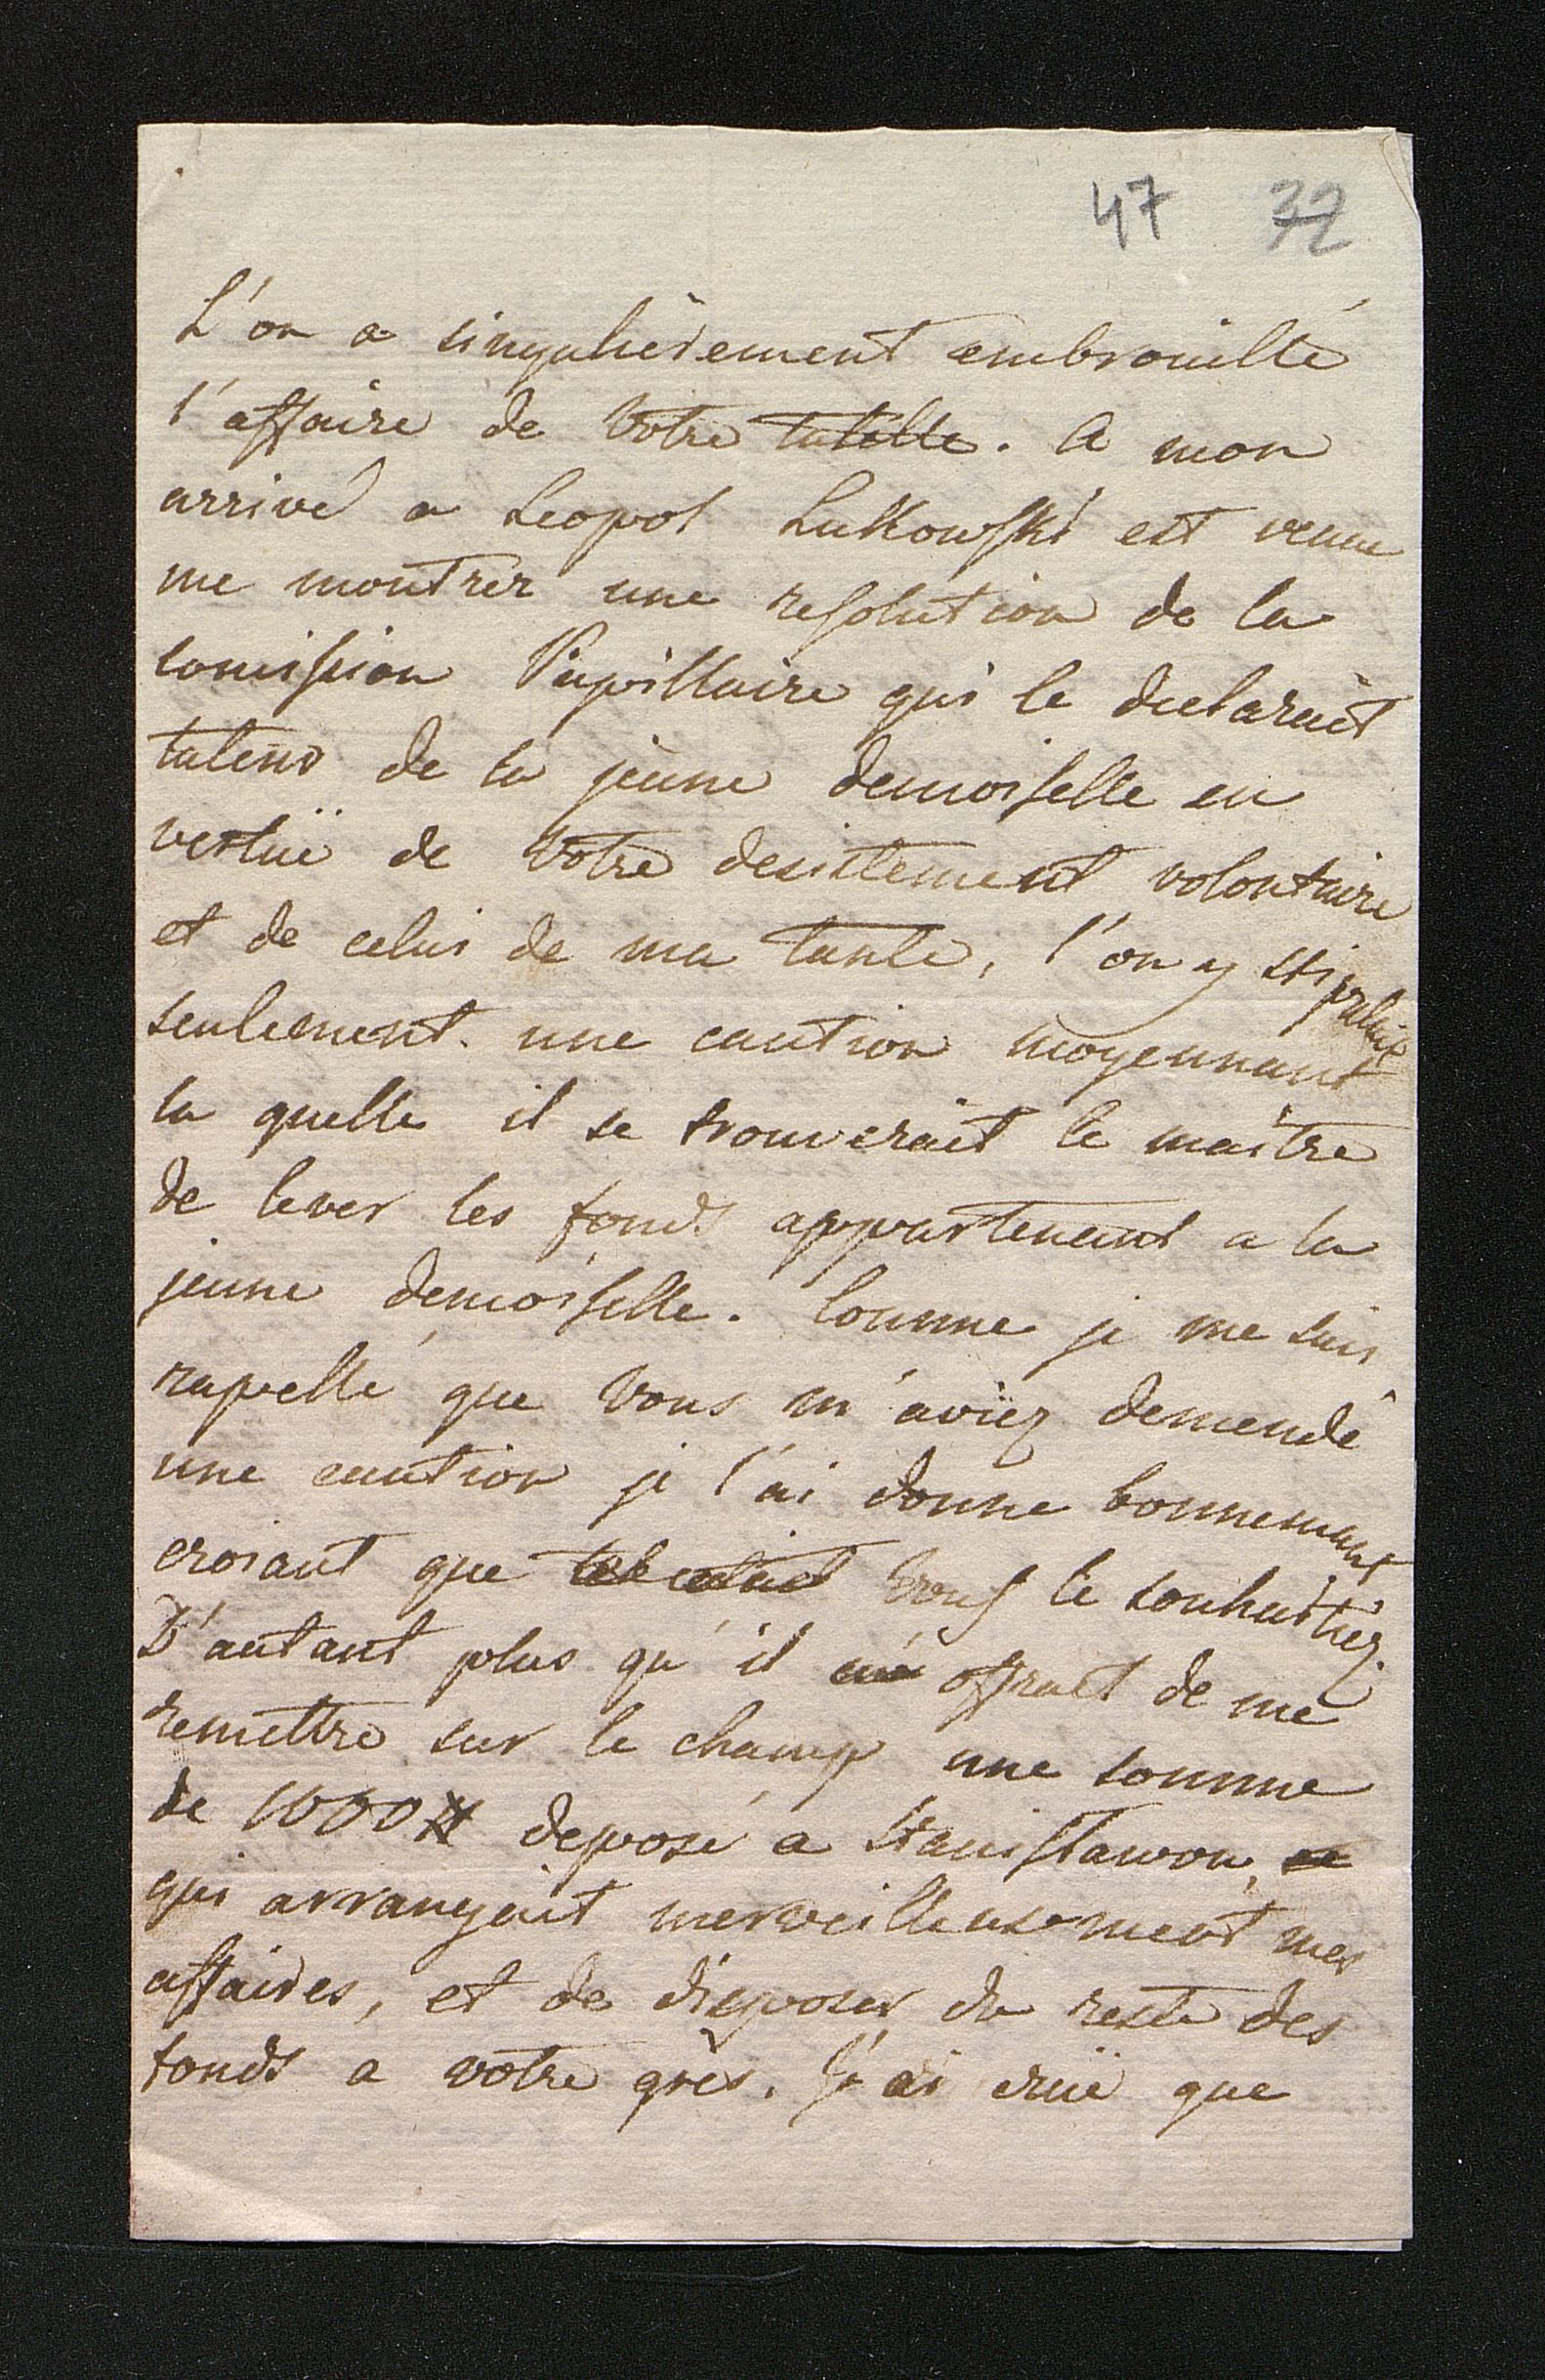 47 32
L'on a singulièrement embrouillé
l'affaire de Votre tutelle. A mon
arrivé a Leopol Lukowski est venu
me montrer une resolution de la
comission Pupillaire qui le declarait
tuteur de la jeune demoiselle en
vertuë de Votre desistement volontaire
et de celui de ma tante, l'on y stipulait
seulement une caution moyennant
la quelle il se trouverait le maitre
de lever les fonds appartenant a la
jeune demoiselle. Comme je me suis
rapellé que Vous m'aviez demendé
une caution je l'ai donne bonnement
croiant que Vous le souhaitiez.
D'autant plus qu'il offrait de me
remettre sur le champ une somme
de 1000 # deposé a Stanislawow,
qui arrangait merveilleusement mes
affaires, et de disposer du reste des
fonds a votre grès. J'ai cruë que